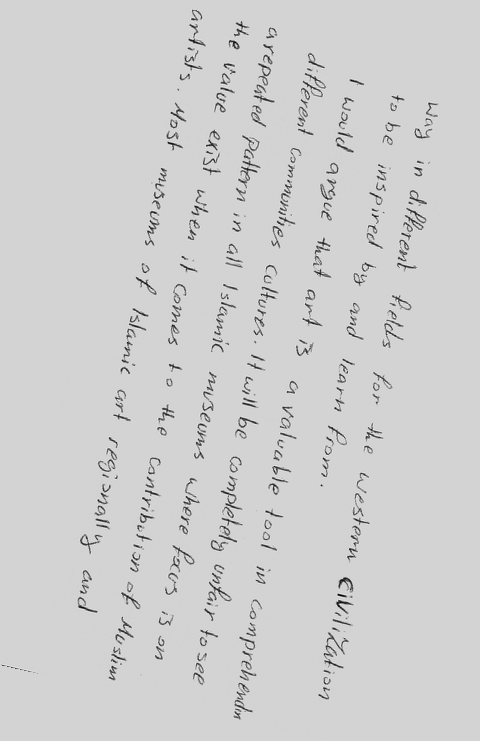 Way in different fields for the western civilization
to be inspired by and learn from.
I would argue that art is a valuable tool in comprehendin
different communities cultures. It will be completely unfair to see
a repeated pattern in all Islamic museums where focus is on
the value exist when it comes to the contribution of Muslim
artists. Most museums of Islamic art regionally and